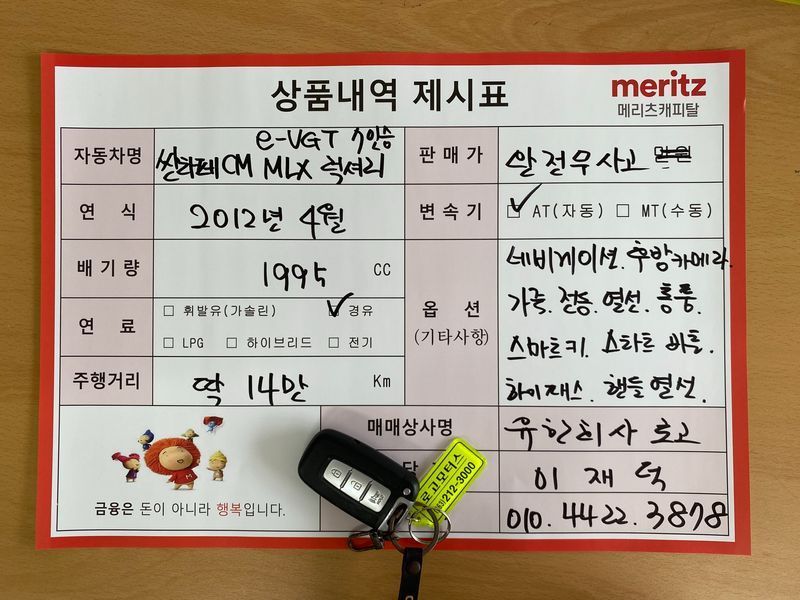 상품내역 제시표
meritz
메리츠캐피탈
자동차명
e-VGT 1인승
싼타페CM MLX 럭셔리
판매가
완전무사고
연 식
2012년 4월
변속기
☑ AT(자동) ☐ MT(수동)
배기량
1995 CC
옵 션
(기타사항)
네비게이션. 후방카메라.
가죽. 전증. 열선. 통풍.
스마트키. 스타트 버튼.
하이패스. 핸들열선.
연 료
☐ 휘발유(가솔린) ☑ 경유
☐ LPG ☐ 하이브리드 ☐ 전기
주행거리
딱 14만 Km
매매상사명
유한회사 로고
담
이재덕
010. 4422. 3878
금융은 돈이 아니라 행복입니다.
로고모터스
212-3000